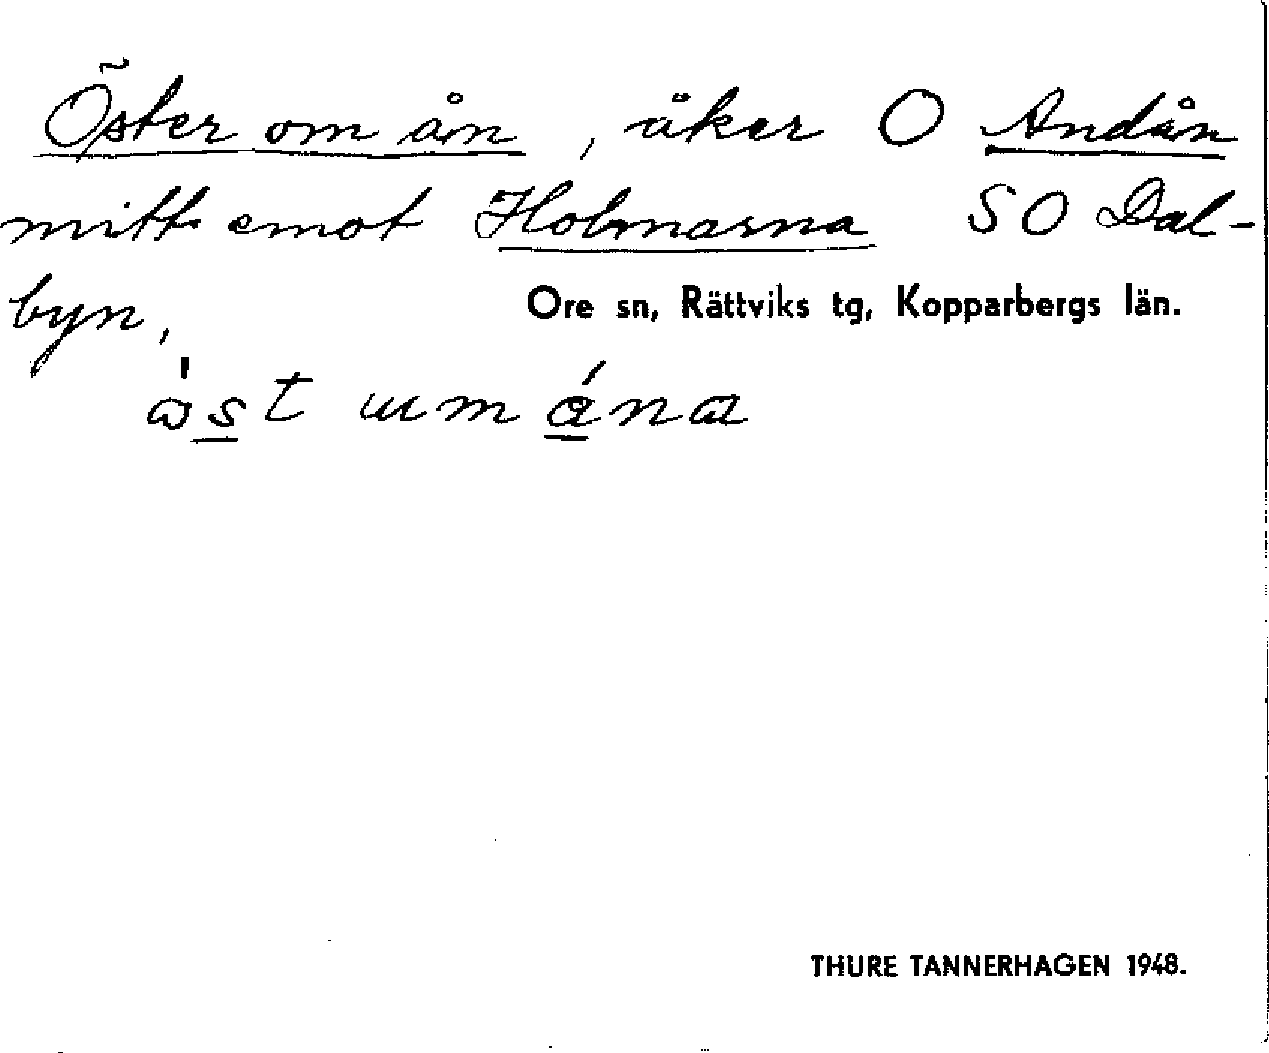 Öster om ån, åker O Andån
mitt emot Holmarna SO Dal-
byn,
Ore sn, Rättviks tg, Kopparbergs län.
THURE TANNERHAGEN 1948.